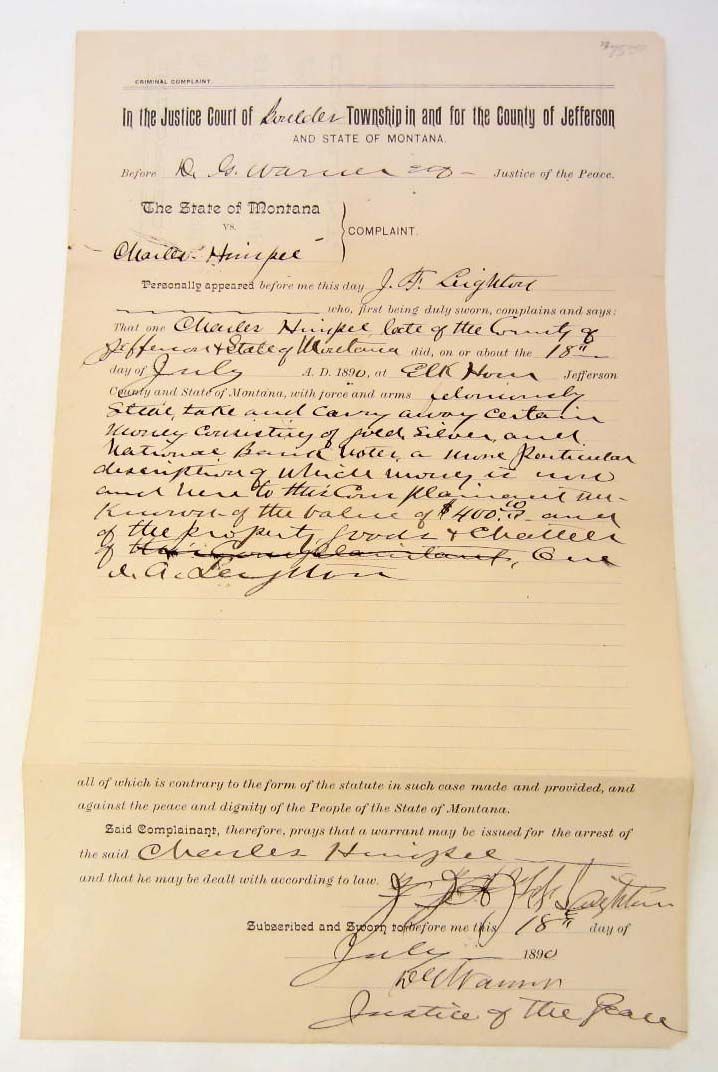 CRIMINAL COMPLAINT.
In the Justice Court of Boulder Township in and for the County of Jefferson
AND STATE OF MONTANA.
Before D. G. Warner Justice of the Peace.
The State of Montana
VS.
COMPLAINT.
Charles Himpel
Personally appeared before me this day J. F. Leighton
who, first being duly sworn, complains and says:
That one Charles Himpel late of the County of
Jefferson & State of Montana did, on or about the 18"
day of July A. D. 1890, at Elk Horn Jefferson
County and State of Montana, with force and arms feloniously
Steal, take and carry away certain
money consisting of gold, silver, and
National Bank notes, a more particular
description of which money is now
and here to this Complainant un-
known of the value of $400. and
of the property, goods & Chattels
of this Complainant, One
J. A. Leighton
all of which is contrary to the form of the statute in such case made and provided, and
against the peace and dignity of the People of the State of Montana.
Said Complainant, therefore, prays that a warrant may be issued for the arrest of
the said Charles Himpel
and that he may be dealt with according to law. Leighton
Subscribed and Sworn to before me this 18" day of
July 1890
D G Warner
Justice of the Peace